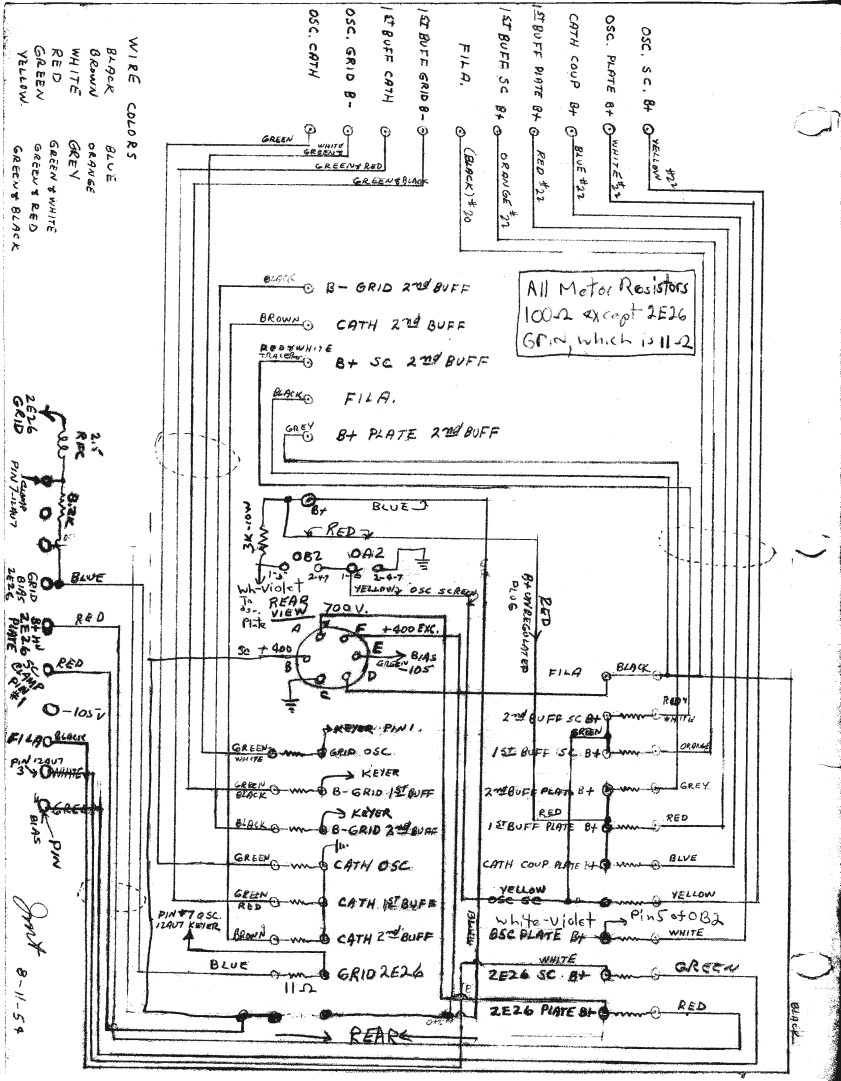 OSC. CATH
OSC. GRID B-
1ST BUFF CATH
1ST BUFF GRID B-
FILA.
1ST BUFF SC B+
1ST BUFF PLATE B+
CATH COUP B+
OSC. PLATE B+
OSC. SC. B+
WIRE COLORS
BLACK BLUE
BROWN ORANGE
WHITE GREY
RED GREEN & WHITE
GREEN GREEN & RED
YELLOW. GREEN & BLACK
GREEN
WHITE
GREEN &
GREEN & RED
GREEN & BLACK
(BLACK) #20
ORANGE #22
RED #22
BLUE #22
WHITE #22
YELLOW #22
BLACK B- GRID 2nd BUFF
BROWN CATH 2nd BUFF
RED & WHITE
TRACER B+ SC 2nd BUFF
BLACK FILA.
GREY B+ PLATE 2nd BUFF
All Meter Resistors
100Ω except 2E26
Grin, which is 11Ω
2E26
GRID
2.5
RFC
CLAMP
PIN 7-12AU7
GRID
BIAS
2E26
BLUE
B+ HV
2E26
PLATE
RED
SC
CLAMP
PIN
#1
RED
-105V
FILA BLACK
PIN 12AU7
3 WHITE
GREEN
PIN
BIAS
8-11-54
B+
BLUE
RED
3K-10W
OB2
OA2
2-4-7
2-4-7
Wh-Violet
To
Osc.
Plate
YELLOW OSC SCREEN
REAR
VIEW
700V.
A
F
+400 EXC.
SC +400
B
E
BIAS
GREEN -105
C
D
RED
B+ UNREGULATED
PLUG
FILA BLACK
2nd BUFF SC B+
RED &
WHITE
GREEN
1ST BUFF SC B+ ORANGE
2nd BUFF PLATE B+ GREY
RED
1ST BUFF PLATE B+ RED
CATH COUP PLATE B+ BLUE
YELLOW
OSC SC YELLOW
White-Violet Pin 5 of OB2
OSC PLATE B+ WHITE
WHITE
2E26 SC. B+ GREEN
2E26 PLATE B+ RED
KEYER PIN 1.
GREEN
WHITE GRID OSC.
KEYER
GREEN
BLACK B-GRID 1ST BUFF
KEYER
BLACK B-GRID 2nd BUFF
GREEN CATH OSC
GREEN
RED CATH 1ST BUFF
PIN #7 OSC.
12AU7 KEYER
BROWN CATH 2nd BUFF
BLUE GRID 2E26
11Ω
REAR
BLACK